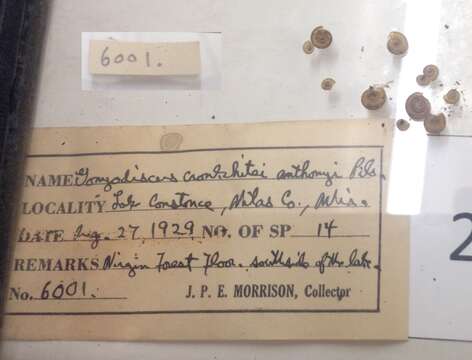 6001.
NAME Gonyodiscus cronkhitei anthonyi Pils.
LOCALITY Lake Constance, Vilas Co., Wis.
DATE Aug. 27, 1929 NO. OF SP 14
REMARKS Virgin Forest Floor. south side of the lake.
No. 6001. J. P. E. MORRISON, Collector
2